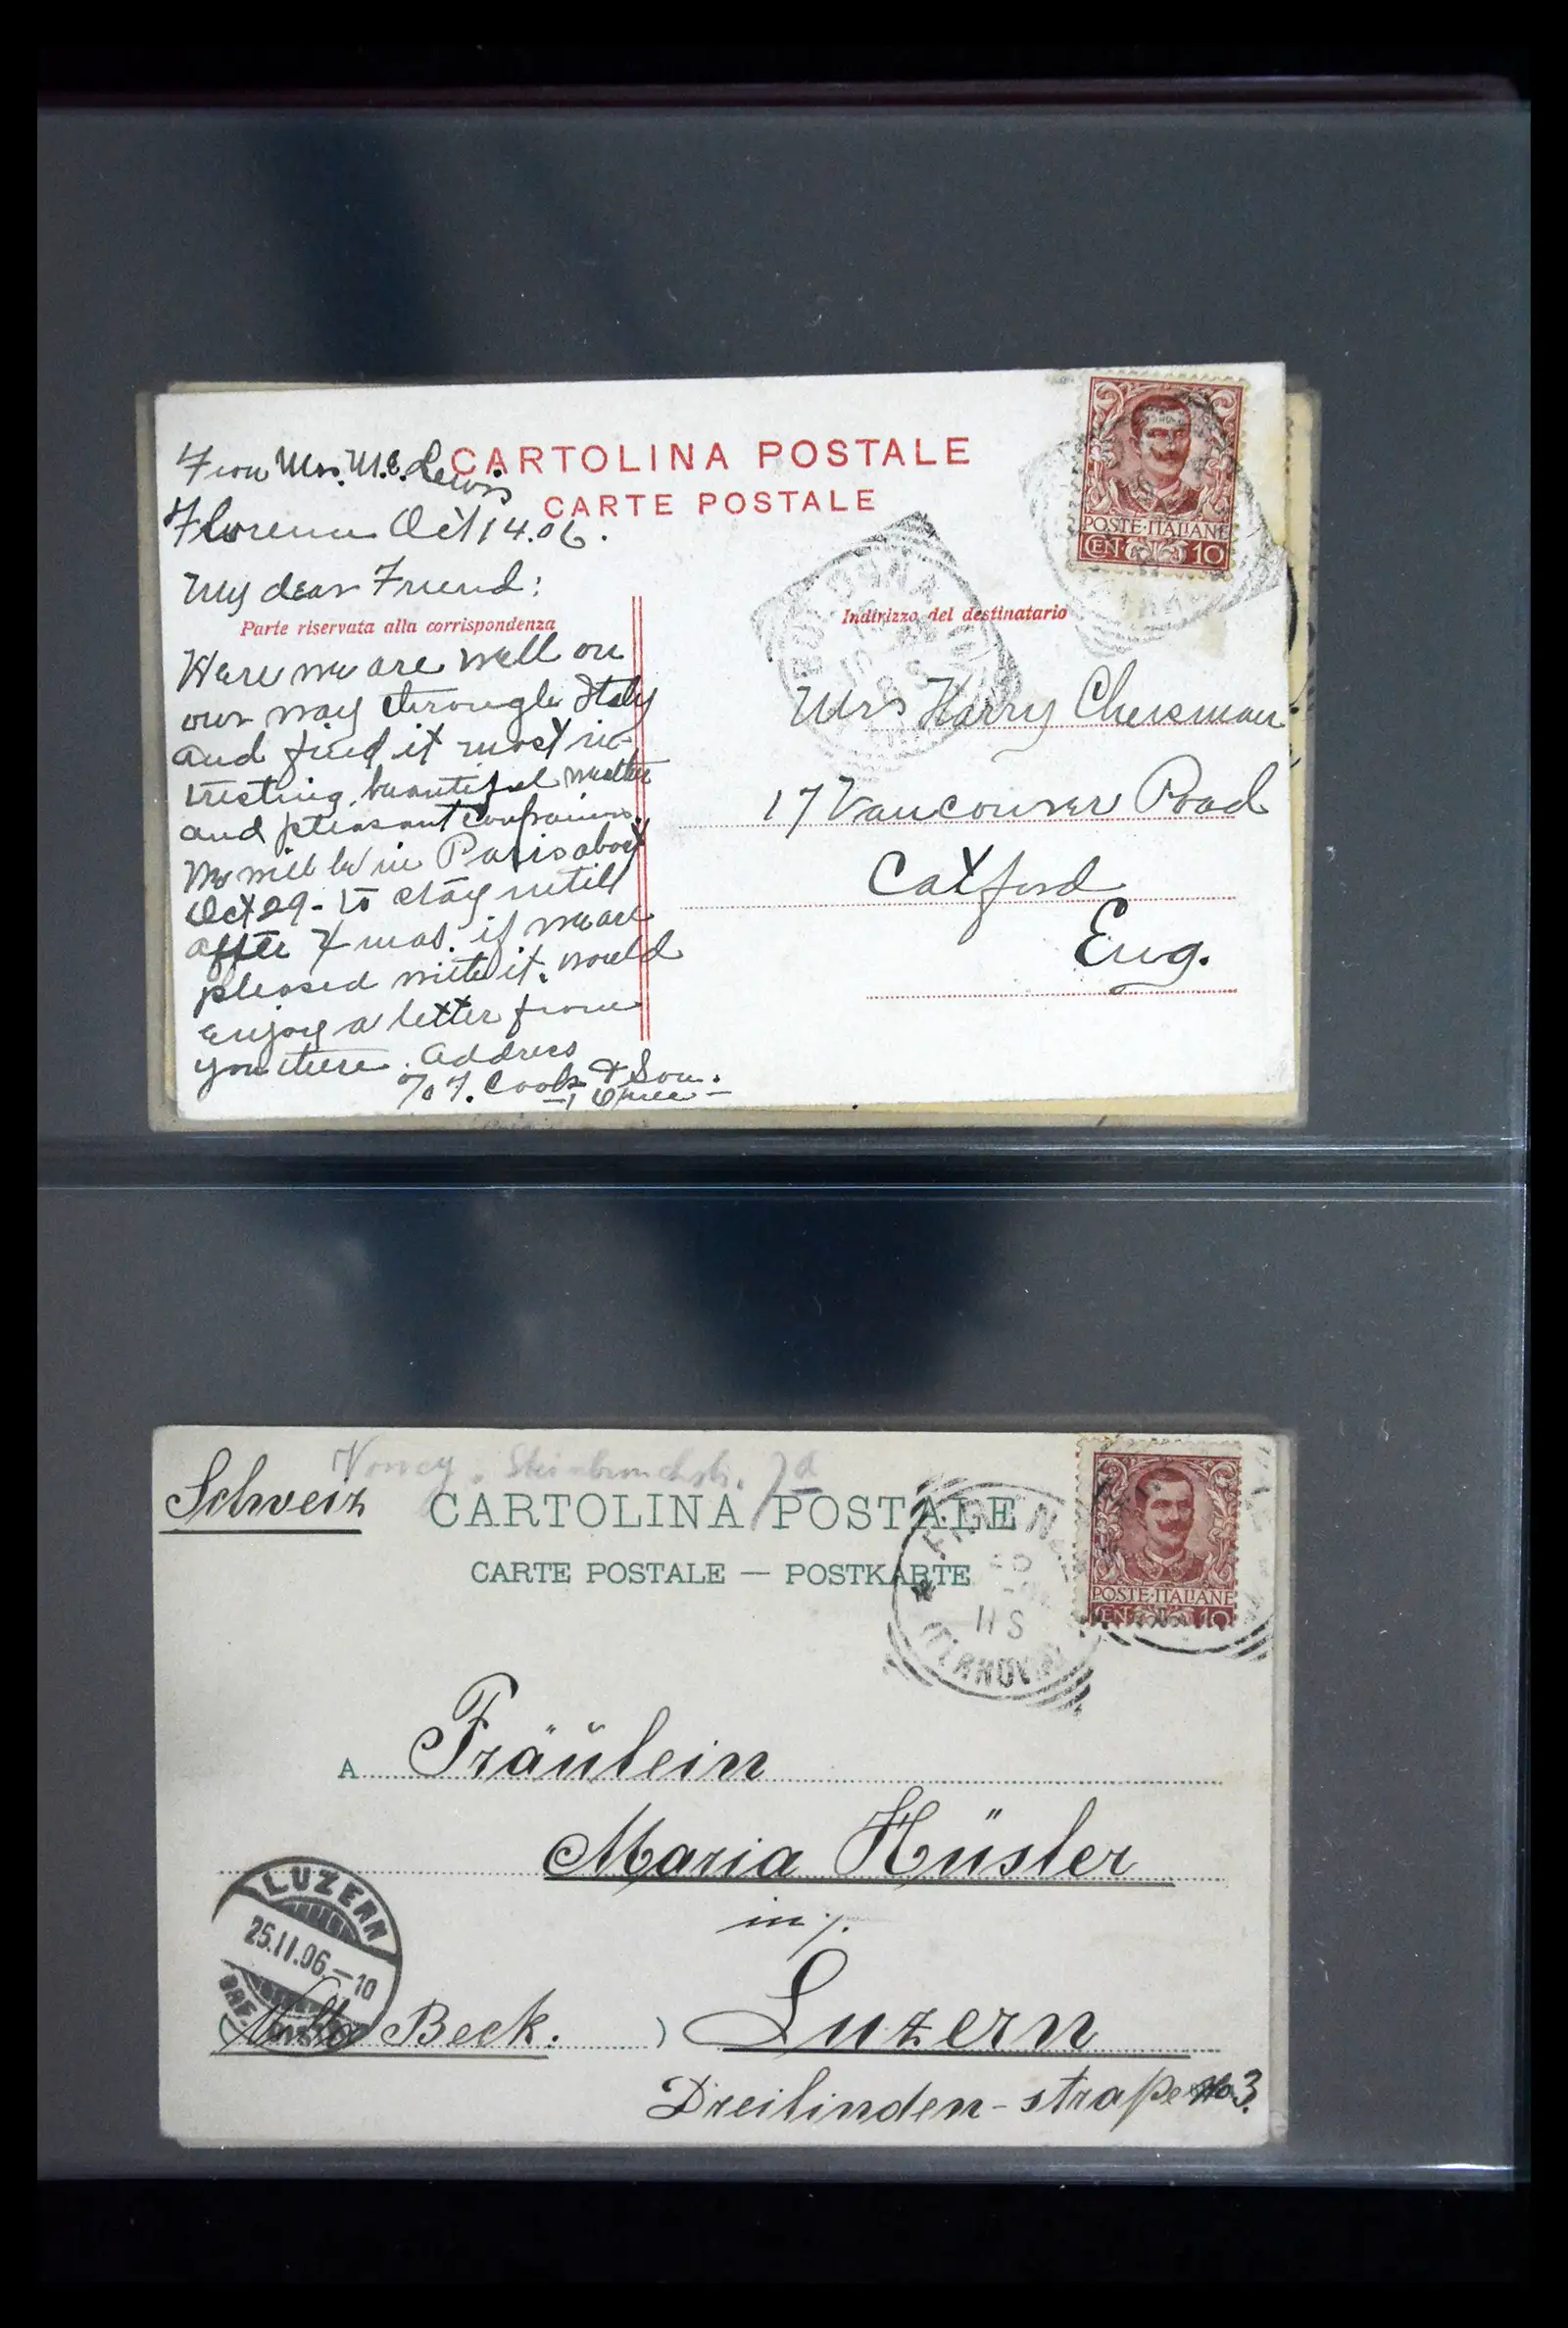 From Mrs. M. E. Lewis
CARTOLINA POSTALE
CARTE POSTALE
Florence Oct 14.06.
My dear Friend:
Parte riservata alla corrispondenza
Here we are well on
our way through Italy
and find it most in-
tresting, beautiful weather
and pleasant companions.
We will be in Paris about
Oct 29 - to stay untill
after Xmas. if we are
pleased with it. would
enjoy a letter from
you there. Address
c/o T. Cook & Son.
POSTE·ITALIANE
CENT. 10
BOLOGNA
Indirizzo del destinatario
Mrs Harry Chesman
17 Vancouver Road
Catford
Eng.
Schweiz
CARTOLINA POSTALE
CARTE POSTALE — POSTKARTE
POSTE·ITALIANE
CENT. 10
FIRENZE
11 S
(FERROVIA)
A Fräŭlein
Maria Hüsler
in /.
LUZERN
25.II.06.–10
BRF.
( Beck: ) Luzern
Dreilinden-straße No 3.